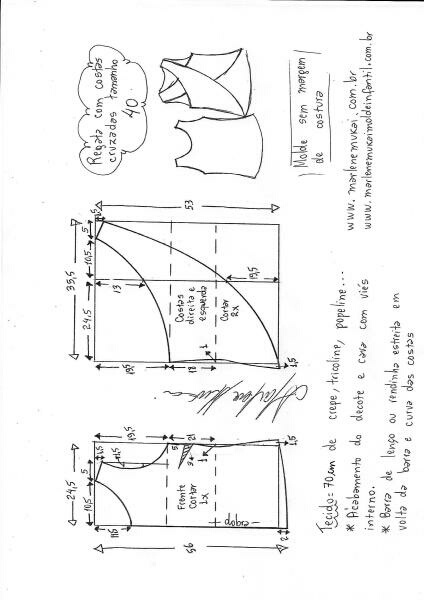 Regata com costas
cruzadas tamanho
40.
Molde sem margem
de costura
www.marlenemukai.com.br
www.marlenemukaimoldeinfantil.com.br
53
35,5
24,5
10,5
5
13
19,5
18
1
1,5
Costas
direita e
esquerda
Cortar
2x
Marlene Mukai
24,5
10,5
19,5
21
5
1
1,5
Frente
Cortar
1x
dobra
56
2
Tecido = 70cm de crepe, tricoline, popeline...
* Acabamento do decote e cava com viés
interno.
* Barra de lenço ou rendinha estreita em
volta da barra e curva das costas